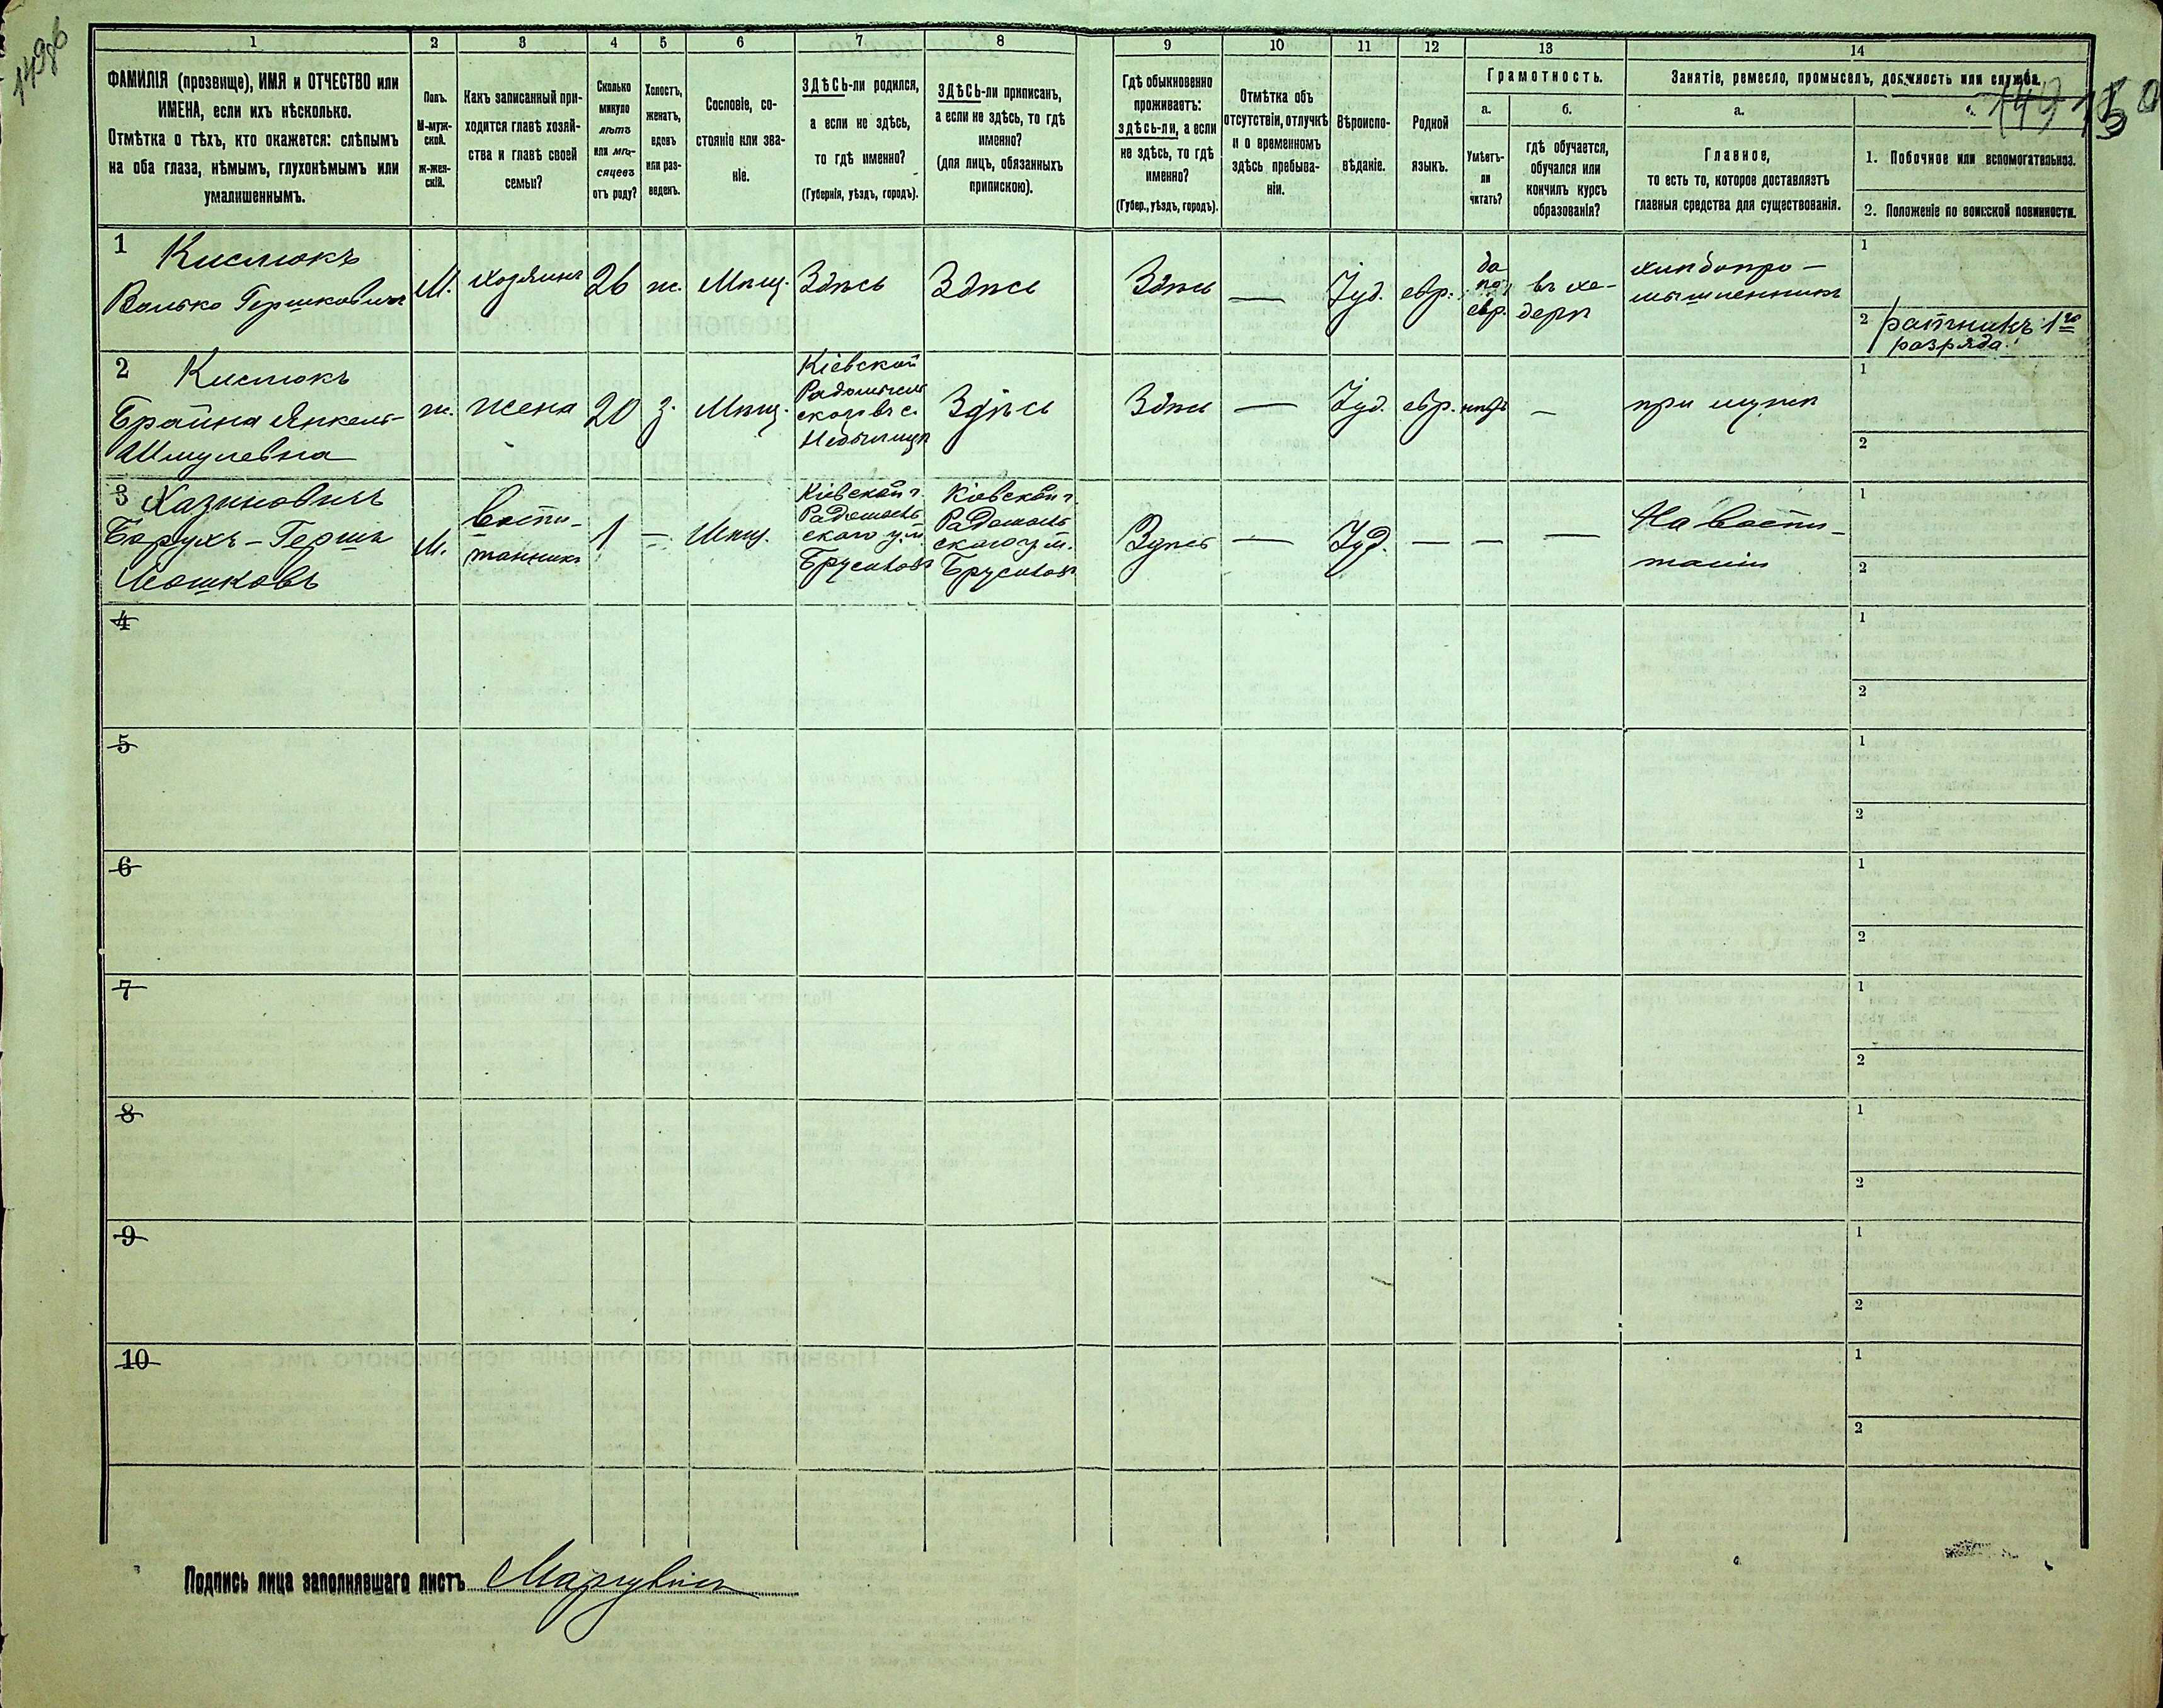 149об
149 150
1
2
3
4
5
6
7
8
9
10
11
12
13
14
ФАМИЛІЯ (прозвище), ИМЯ и ОТЧЕСТВО или
ИМЕНА, если ихъ нѣсколько.
Отмѣтка о тѣхъ, кто окажется: слѣпымъ
на оба глаза, нѣмымъ, глухонѣмымъ или
умалишеннымъ.
Полъ.
М-муж-
ской.
ж-жен-
скій.
Какъ записанный при-
ходится главѣ хозяй-
ства и главѣ своей
семьи?
Сколько
минуло
лѣтъ
или мѣ-
сяцевъ
отъ роду?
Холостъ,
женатъ,
вдовъ
или раз-
веденъ.
Сословіе, со-
стояніе или зва-
ніе.
ЗДѢСЬ-ли родился,
а если не здѣсь,
то гдѣ именно?
(Губернія, уѣздъ, городъ).
ЗДѢСЬ-ли приписанъ,
а если не здѣсь, то гдѣ
именно?
(для лицъ, обязанныхъ
припискою).
Гдѣ обыкновенно
проживаетъ:
здѣсь-ли, а если
не здѣсь, то гдѣ
именно?
(Губер., уѣздъ, городъ).
Отмѣтка объ
отсутствіи, отлучкѣ
и о временномъ
здѣсь пребыва-
ніи.
Вѣроиспо-
вѣданіе.
Родной
языкъ.
Грамотность.
а.
Умѣетъ-
ли
читать?
б.
гдѣ обучается,
обучался или
кончилъ курсъ
образованія?
Занятіе, ремесло, промыселъ, должность или служба.
а.
Главное,
то есть то, которое доставляетъ
главныя средства для существованія.
1. Побочное или вспомогательное.
2. Положеніе по воинской повинности.
1 Кислюкъ
Волько Гершковичъ
М.
хозяинъ
26
ж.
Мѣщ.
Здѣсь
Здѣсь
Здѣсь
—
Іуд.
евр.
да
по
евр.
въ хе-
дерѣ
хлѣбопро-
мышленникъ
1
2 ратникъ 1го
разряда
2 Кислюкъ
Брайна Янкель-
Шмулевна
ж.
жена
20
з.
Мѣщ.
Кіевской
Радомысль
скаго в с.
Небылицѣ
Здѣсь
Здѣсь
—
Іуд.
евр.
нѣтъ
—
при мужѣ
1
2
3 Хазиновичъ
Борухъ-Гершъ
Мошковъ
М.
воспи-
танникъ
1
—
Мѣщ.
Кіевской г.
Радомысль
скаго у. м.
Брусиловъ
Кіевской г.
Радомысль
скаго у. м.
Брусиловъ
Здѣсь
—
Іуд.
—
—
—
На воспи-
таніи
1
2
4
1
2
5
1
2
6
1
2
7
1
2
8
1
2
9
1
2
10
1
2
Подпись лица заполнявшаго листъ